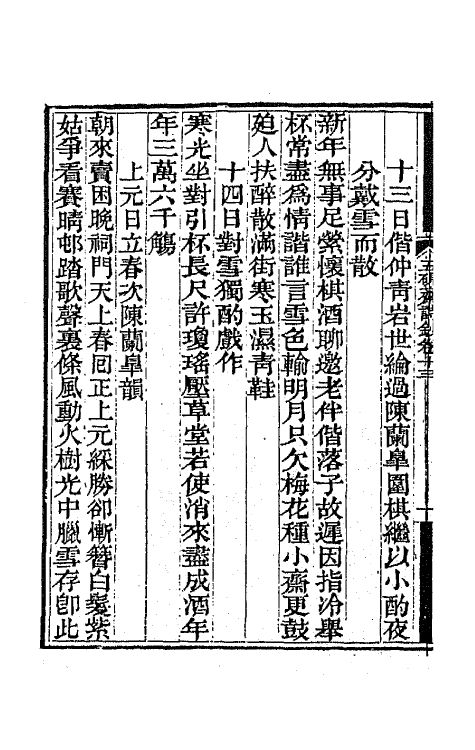 十三日偕仲靑岩世綸過陳蘭臯圍棋繼以小酌夜
分戴雪而散
新年無事足縈懷棋酒聊邀老伴偕落子故遲因指冷舉
杯常盡爲情諧誰言雪色輸明月只欠梅花種小齋更鼓
廹人扶醉散滿街寒玉濕靑鞋
十四日對雪獨酌戲作
寒光坐對引杯長尺許瓊瑤壓草堂若使消來盡成酒年
年三萬六千觴
上元日立春次陳蘭臯韻
朝來賣困晚祠門天上春回正上元綵勝卻慚簪白髮紫
姑爭看賽晴邨踏歌聲裏條風動火樹光中臘雪存卽此